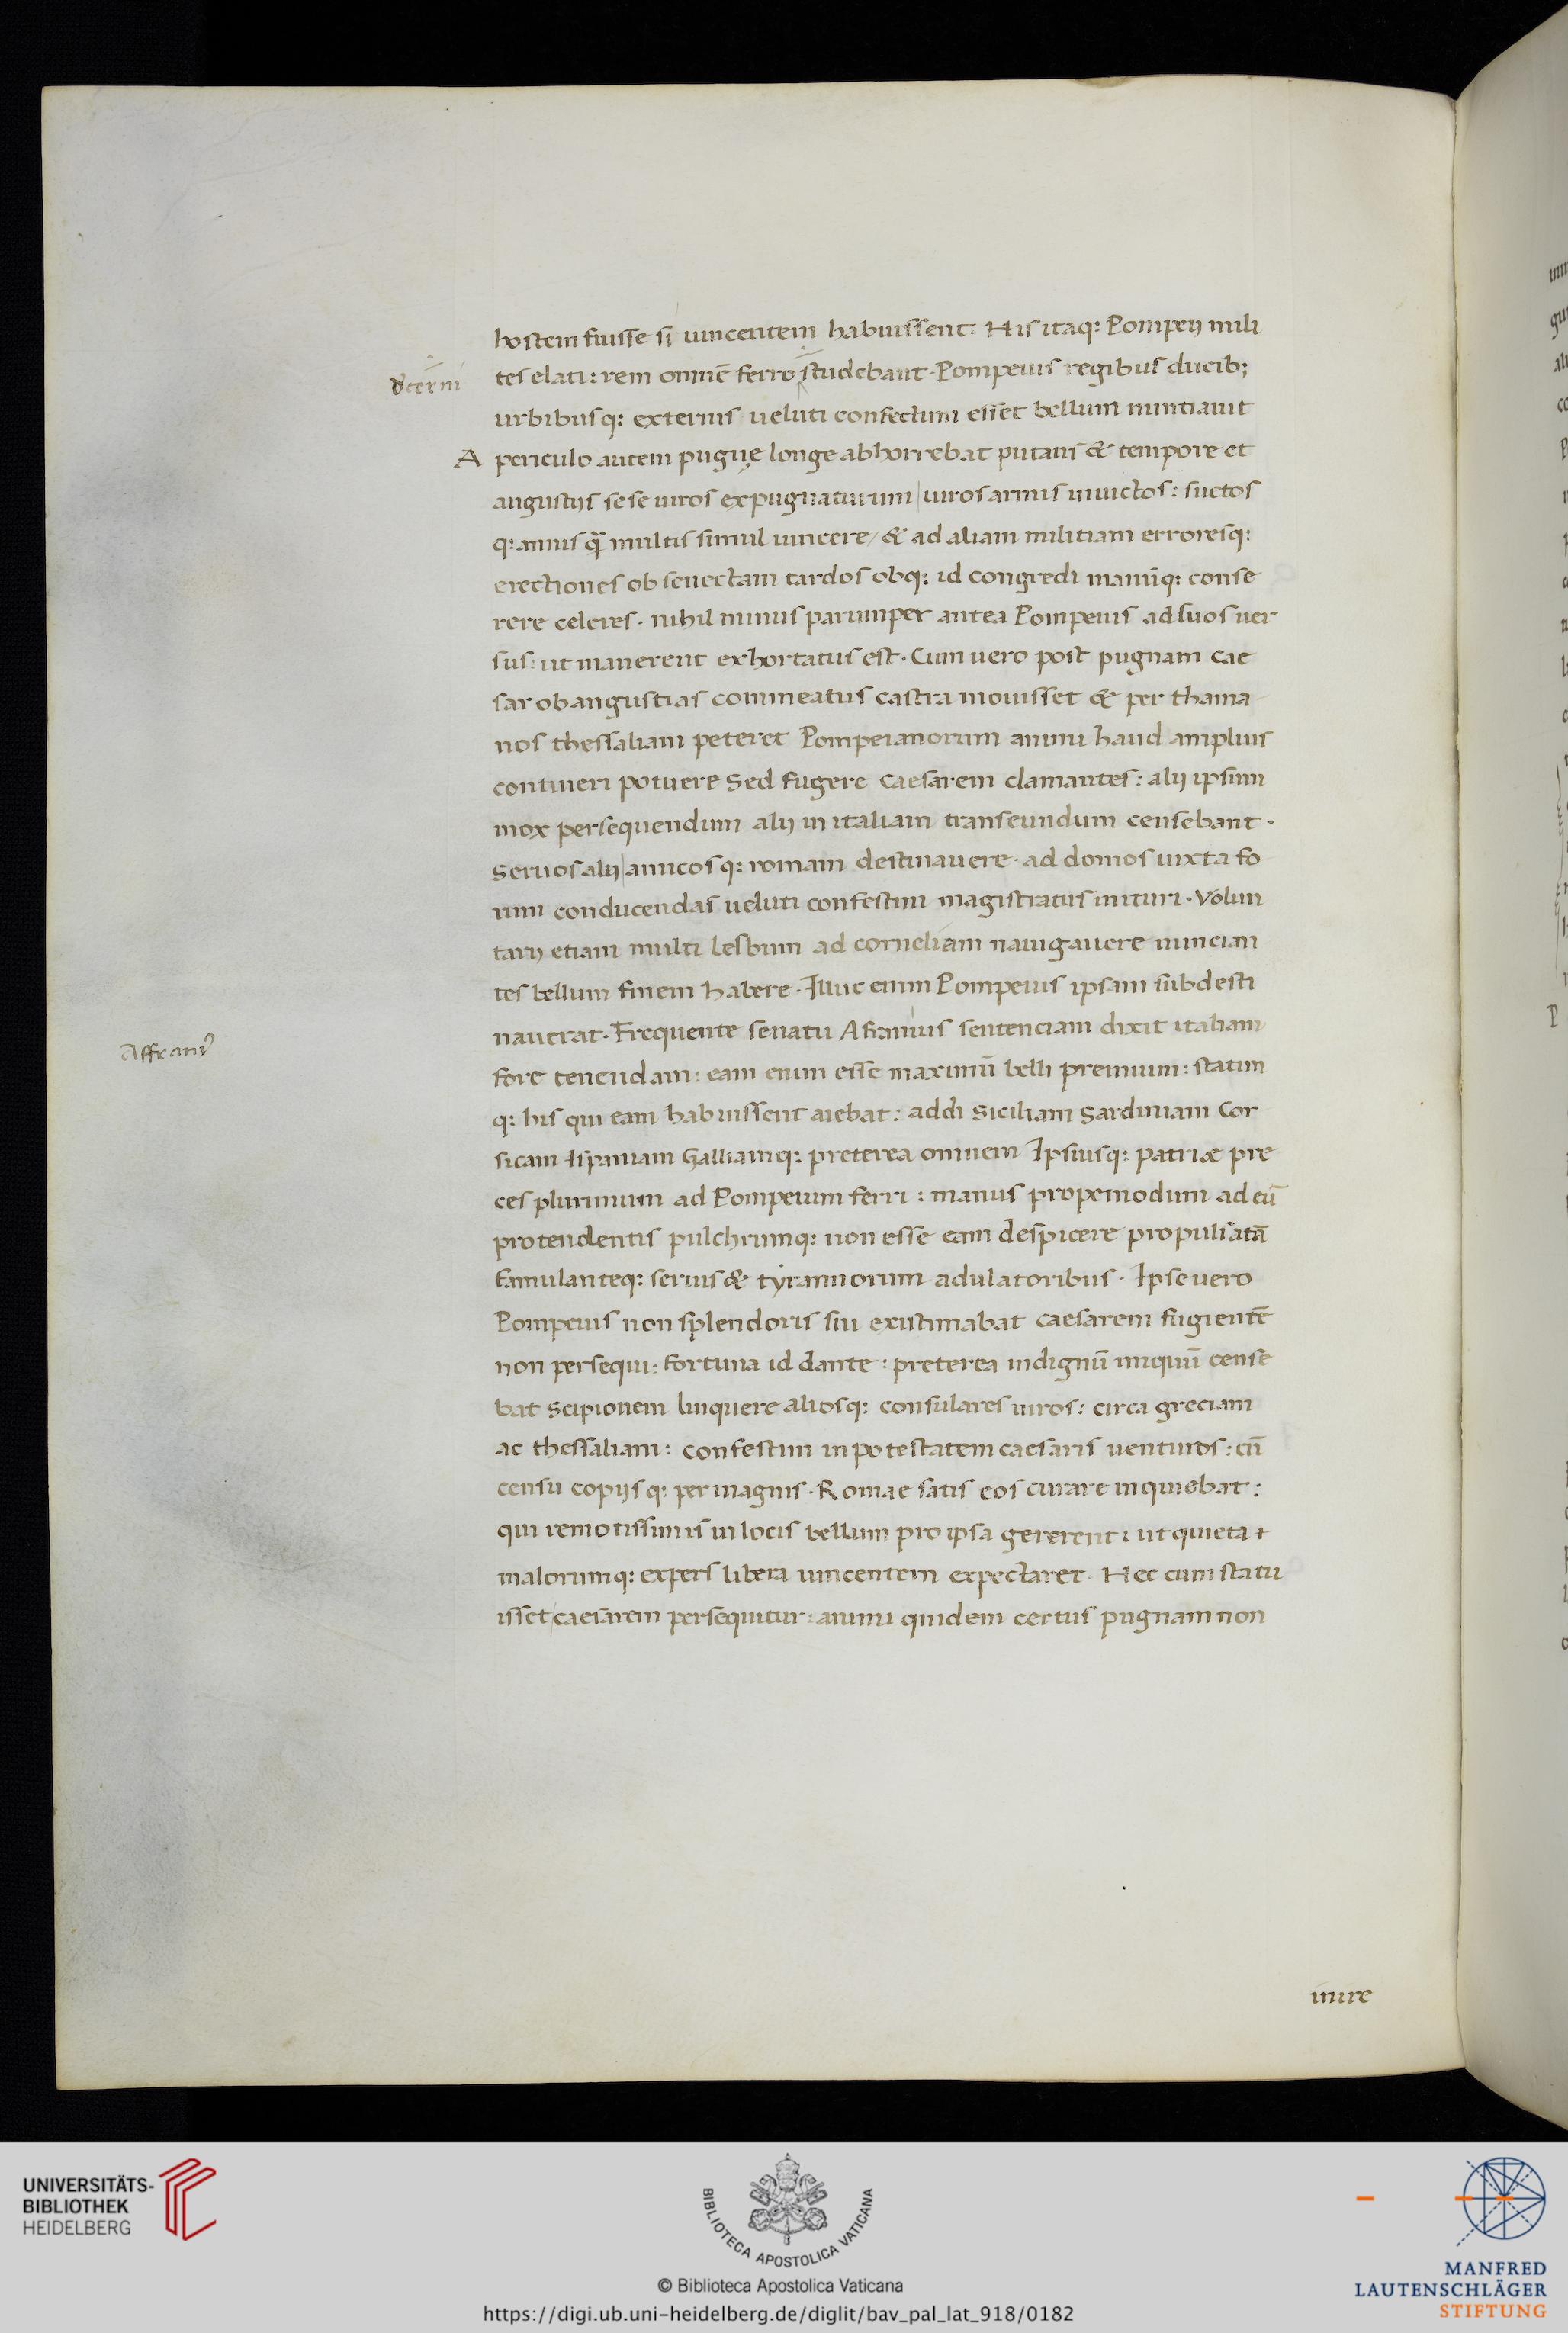 hostem fuisse si uincentem habuissent. His itaq: Pompeij mili
dcerni
tes elati: rem omnē ferro studebant. Pompeius regibus ducib;
urbibusq: externis ueluti confectum esset bellum nuntiauit
A periculo autem pugnę longe abhorrebat putans & tempore et
angustijs sese uiros expugnaturum uiros armis inuictos: suetos
q: annis qͣ multis simul uincere / & ad aliam militiam erroresq:
erectiones ob senectam tardos obq: id congredi manūq: conse
rere celeres. nihil minus parumper antea Pompeius ad suos uer
sus: ut manerent exhortatus est. Cum uero post pugnam cae
sar ob angustias commeatus castra mouisset & per thama
nos thessaliam peteret Pompeianorum animi haud amplius
contineri potuere Sed fugere caesarem clamantes: alij ipsum
mox persequendum alij in italiam transeundum censebant.
Seruos alij amicosq: romam destinauere. ad domos iuxta fo
rum conducendas ueluti confestim magistratus inituri. Volun
tarij etiam multi Lesbum ad corneliam nauigauere nuncian
tes bellum finem habere. Illuc enim Pompeius ipsam subdesti
nauerat. Frequente senatu Afranius sentenciam dixit italiam
Affrani9
fore tenendam: eam enim esse maximū belli premium: statim
q: his qui eam habuissent aiebat: addi Siciliam Sardiniam Cor
sicam Ispaniam Galliamq: preterea omnem Ipsiusq: patriæ pre
ces plurimum ad Pompeium ferri: manus propemodum ad eū
protendentis pulchrumq: non esse eam despicere propulsatā
famulanteq: seruis & tyrannorum adulatoribus. Ipse uero
Pompeius non splendoris sui existimabat caesarem fugientē
non persequi: fortuna id dante: preterea indignū iniquū cense
bat Scipionem linquere aliosq: consulares uiros: circa greciam
ac thessaliam: confestim in potestatem caesaris uenturos: cū
censu copijsq: per magnis. Romae satis eos curare inquiebat:
qui remotissimis in locis bellum pro ipsa gererent: ut quieta +
malorumq: expers libera uincentem expectaret. Hec cum statu
isset caesarem persequitur: animi quidem certus pugnam non
inire
UNIVERSITÄTS-
BIBLIOTHEK
HEIDELBERG
BIBLIOTECA APOSTOLICA VATICANA
© Biblioteca Apostolica Vaticana
https://digi.ub.uni-heidelberg.de/diglit/bav_pal_lat_918/0182
MANFRED
LAUTENSCHLÄGER
STIFTUNG